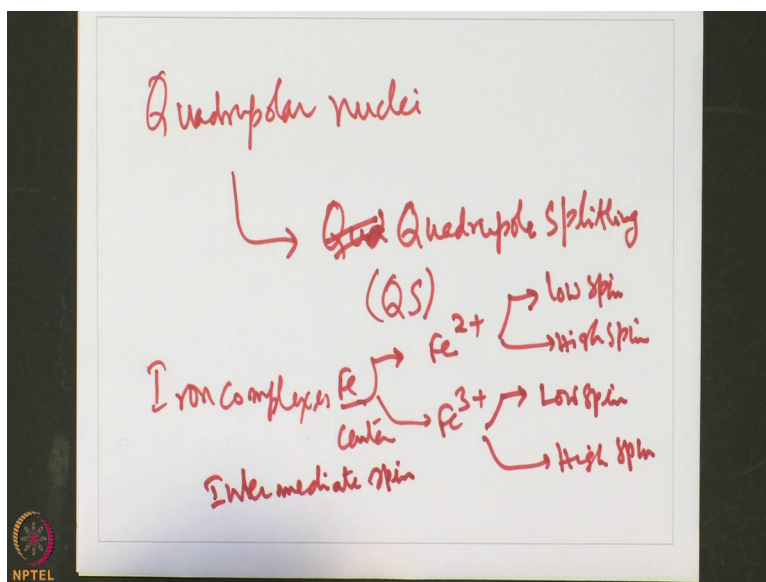 Quadrupolar nuclei
Quadrupole Splitting
(QS)
Iron complexes Fe center
Fe2+
Low spin
High Spin
Fe3+
Low spin
High spin
Intermediate spin
NPTEL